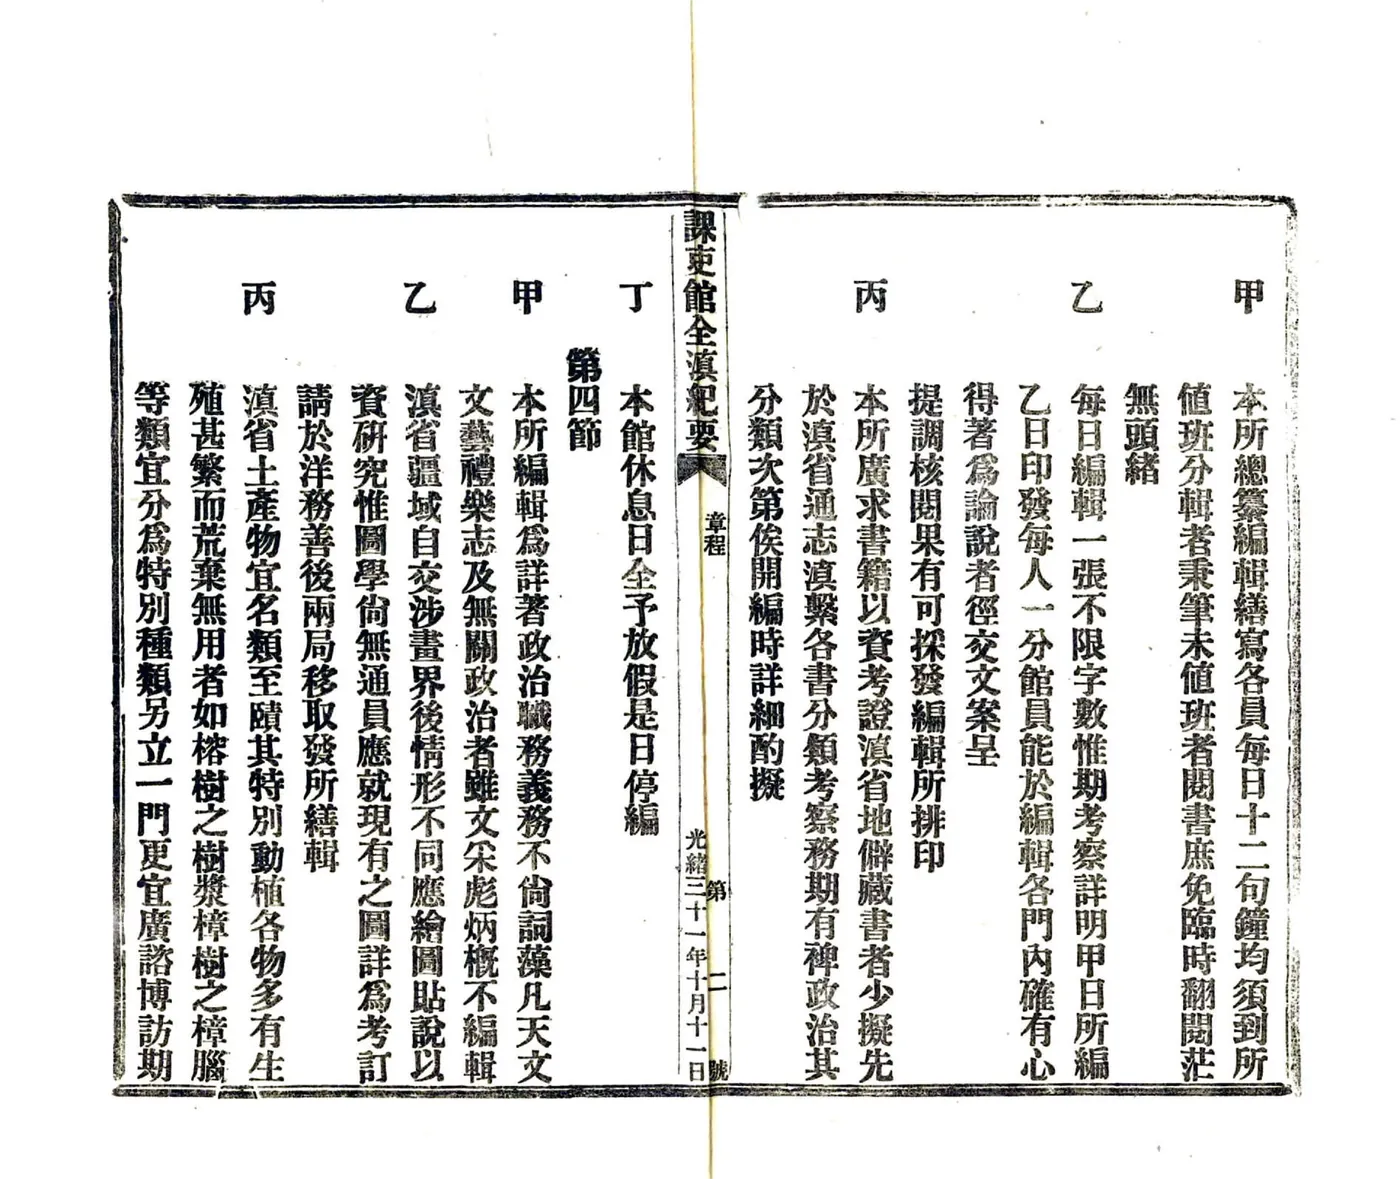 甲
本所總纂編輯繕寫各員每日十二句鐘均須到所
値班分輯者秉筆未値班者閱書庶免臨時翻閱茫
無頭緒
乙
每日編輯一張不限字數惟期考察詳明甲日所編
乙日印發每人一分館員能於編輯各門內確有心
得著爲論說者徑交文案呈
提調核閱果有可採發編輯所排印
丙
本所廣求書籍以資考證滇省地僻藏書者少擬先
於滇省通志滇繫各書分類考察務期有裨政治其
分類次第俟開編時詳細酌擬
課吏館全滇紀要
章程
第二號
光緒三十一年十月十一日
丁
本館休息日全予放假是日停編
第四節
甲
本所編輯爲詳著政治職務義務不尙詞藻凡天文
文藝禮樂志及無關政治者雖文采彪炳槪不編輯
乙
滇省疆域自交涉畫界後情形不同應繪圖貼說以
資硏究惟圖學尙無通員應就現有之圖詳爲考訂
請於洋務善後兩局移取發所繕輯
丙
滇省土產物宜名類至賾其特別動植各物多有生
殖甚繁而荒棄無用者如榕樹之樹漿樟樹之樟腦
等類宜分爲特別種類另立一門更宜廣諮博訪期